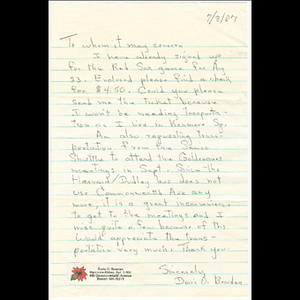 7/2/87
To whom it may concern
I have already signed up
for the Red Sox game for Au.
23. Enclosed please find a check
for $4.50. Could you please
send me the ticket because
I won't be needing transporta-
tion as I live in Kenmore Sq.
Am also requesting trans-
portation from the Senior
Shuttle to attend the Goldenaires
meetings in Sept. Since the
Harvard/Dudley bus does not
use Commonwealth Ave any
more, it is a great inconvenience
to get to the meetings and I
miss quite a few because of this.
Would appreciate the trans-
portation very much. Thank you.
Sincerely
Doris O. Bowden